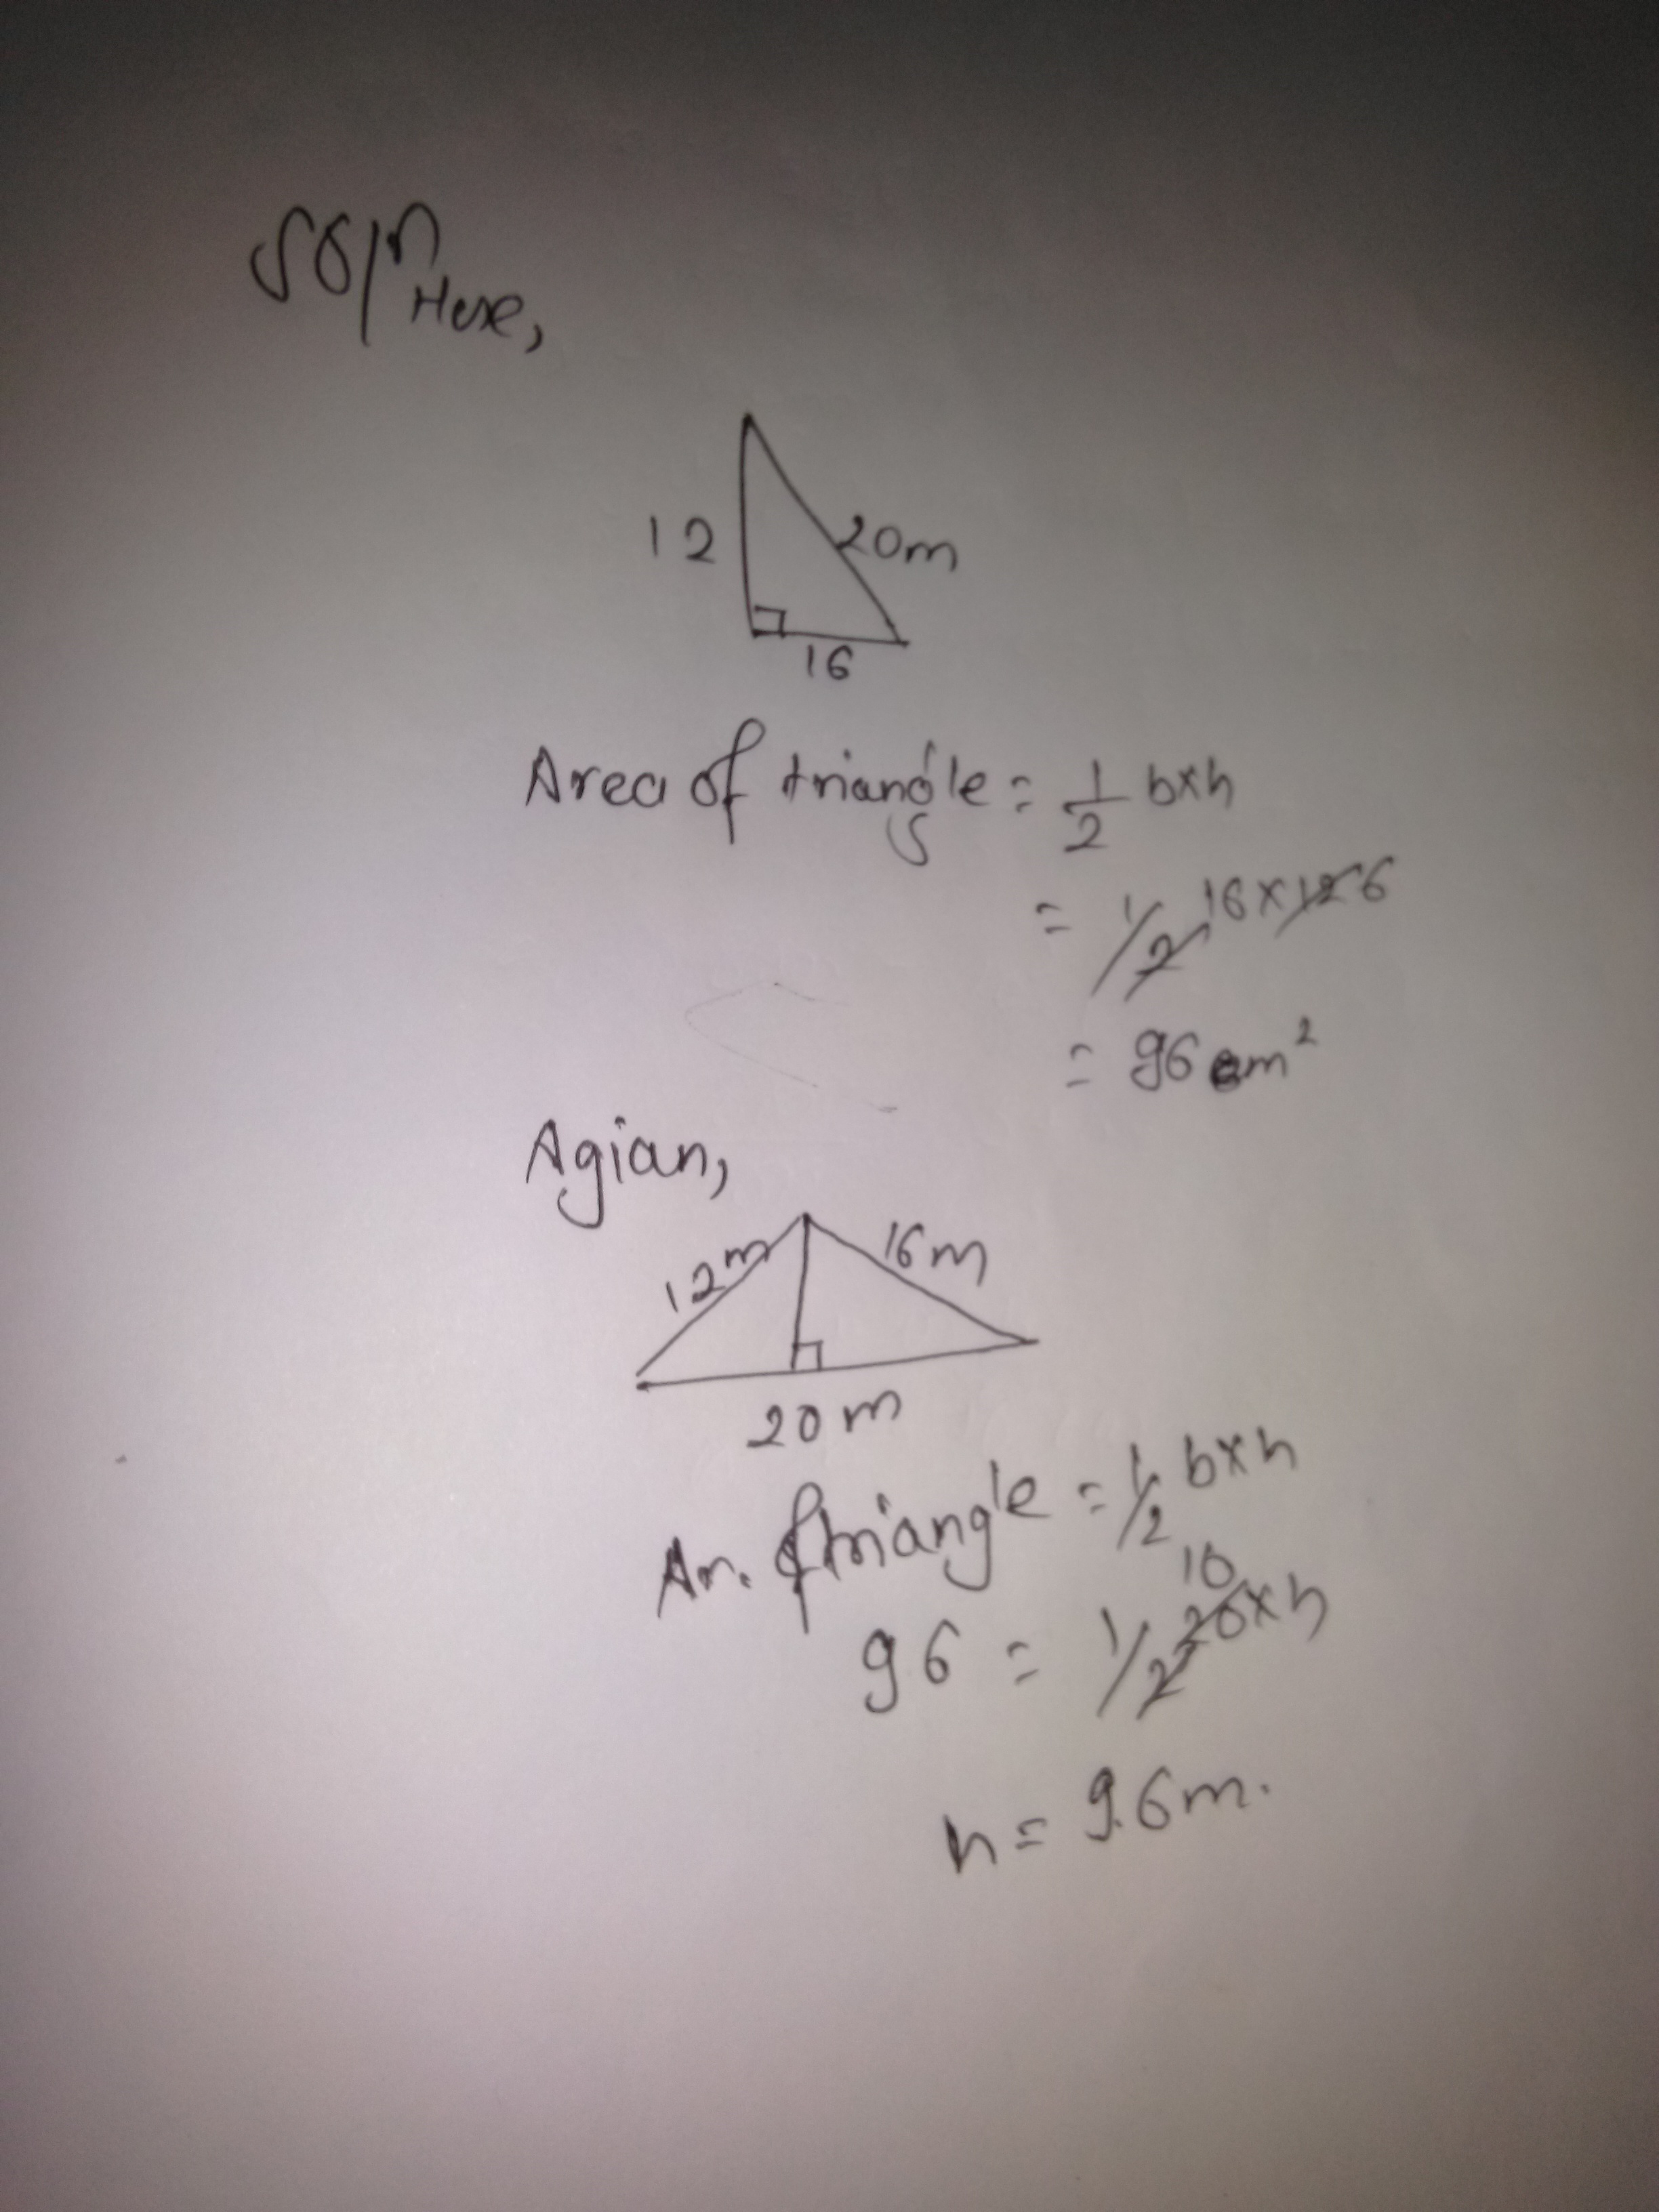 Soln Here,
12
20m
16
Area of triangle = 1/2 b×h
= 1/2 16×12 6
= 96 m²
Agian,
12m
16m
20m
Ar. of triangle = 1/2 b×h
10
96 = 1/2 20×h
h = 9.6m.